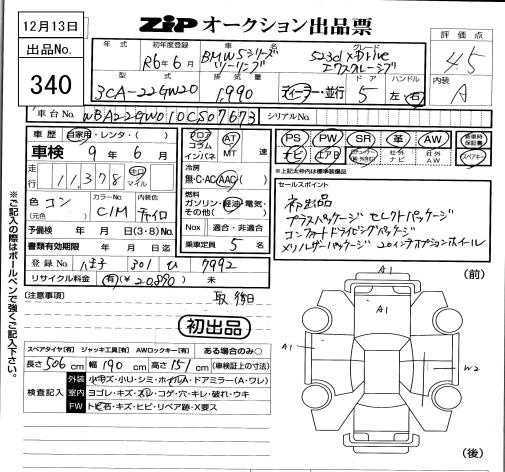 12月13日
ZiP オークション出品票
出品No.
340
年式
初年度登録
R6年6月
車名
BMW5シリーズ
ツーリング
グレード
523d xDrive
エクスクルーシブ
評価点
4.5
型式
3CA-22GW20
排気量
1,990
ディーラー・並行
ドア
5
ハンドル
左・右
内装
A
車台No.
WBA22GW010CS07673
シリアルNo.
車歴 自家用・レンタ・( )
車検 9年6月
走行 11,378 キロ マイル
色 コン
(元色)
カラーNo. C1M
内装色 チャイロ
予備検 年 月 日(3・8)No.
書類有効期限 年 月 日
登録No. 八王子 301 ひ 7992
リサイクル料金 有(¥20,890) 未
フロア
コラム
インパネ
AT
MT
速
冷房
無・C・AC・AAC( )
燃料
ガソリン・軽油・電気・
その他( )
Nox 適合・非適合
乗車定員 5 名
PS PW SR 革 AW 新車時保証書
ナビ エアB 社外ナビ 社外AW スペアキー
※上記○枠内は標準装備品
セールスポイント
初出品
プラスパッケージ セレクトパッケージ
コンフォートドライビングパッケージ
メリノレザーパッケージ 20インチオプションホイール
※ご記入の際はボールペンで強くご記入下さい。
[注意事項]
取 後日
初出品
スペアタイヤ[有] ジャッキ工具[有] AWロックキー[有] ある場合のみ○
長さ 506 cm 幅 190 cm 高さ 151 cm (車検証上の寸法)
検査記入
外装 小キズ・小U・シミ・ホイルA・ドアミラー(A・ワレ)
室内 ヨゴレ・キズ・スレ・コゲ・穴・キレ・破れ・ウキ
FW トビ石・キズ・ヒビ・リペア跡・X要ス
(前)
A1
A1
A1
W2
(後)